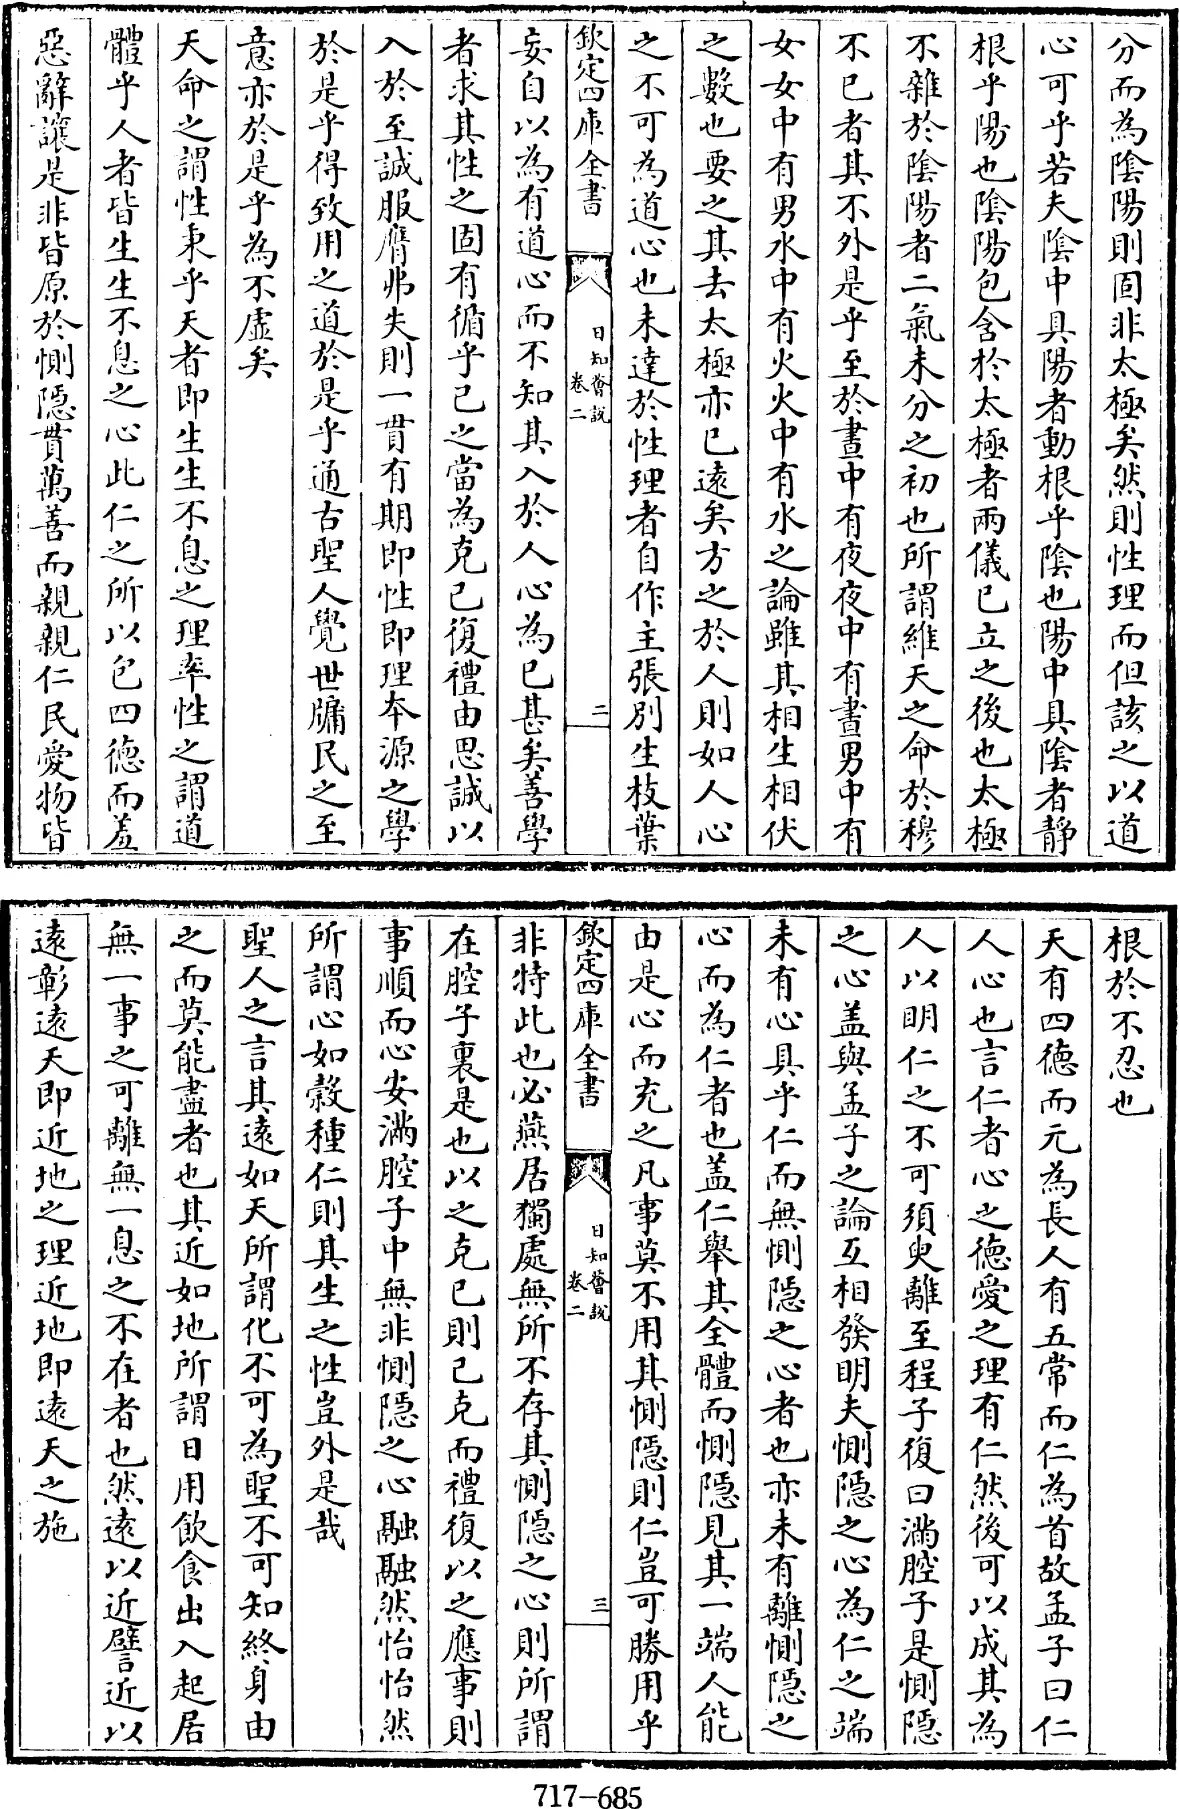 分而為陰陽則固非太極矣然則性理而但該之以道
心可乎若夫陰中具陽者動根乎陰也陽中具陰者靜
根乎陽也陰陽包含於太極者兩儀已立之後也太極
不雜於陰陽者二氣未分之初也所謂維天之命於穆
不已者其不外是乎至於晝中有夜夜中有晝男中有
女女中有男水中有火火中有水之論雖其相生相伏
之數也要之其去太極亦已遠矣方之於人則如人心
之不可為道心也未達於性理者自作主張別生枝葉
欽定四庫全書
日知薈說
卷二
二
妄自以為有道心而不知其入於人心為已甚矣善學
者求其性之固有循乎己之當為克己復禮由思誠以
入於至誠服膺弗失則一貫有期即性即理本源之學
於是乎得致用之道於是乎通古聖人覺世牖民之至
意亦於是乎為不虛矣
天命之謂性秉乎天者即生生不息之理率性之謂道
體乎人者皆生生不息之心此仁之所以包四德而羞
惡辭讓是非皆原於惻隱貫萬善而親親仁民愛物皆
根於不忍也
天有四德而元為長人有五常而仁為首故孟子曰仁
人心也言仁者心之德愛之理有仁然後可以成其為
人以明仁之不可須臾離至程子復曰滿腔子是惻隱
之心盖與孟子之論互相發明夫惻隱之心為仁之端
未有心具乎仁而無惻隱之心者也亦未有離惻隱之
心而為仁者也盖仁舉其全體而惻隱見其一端人能
由是心而充之凡事莫不用其惻隱則仁豈可勝用乎
欽定四庫全書
日知薈說
卷二
三
非特此也必燕居獨處無所不存其惻隱之心則所謂
在腔子裏是也以之克已則己克而禮復以之應事則
事順而心安滿腔子中無非惻隱之心融融然怡怡然
所謂心如穀種仁則其生之性豈外是哉
聖人之言其遠如天所謂化不可為聖不可知終身由
之而莫能盡者也其近如地所謂日用飲食出入起居
無一事之可離無一息之不在者也然遠以近譬近以
遠彰遠天即近地之理近地即遠天之施
717-685